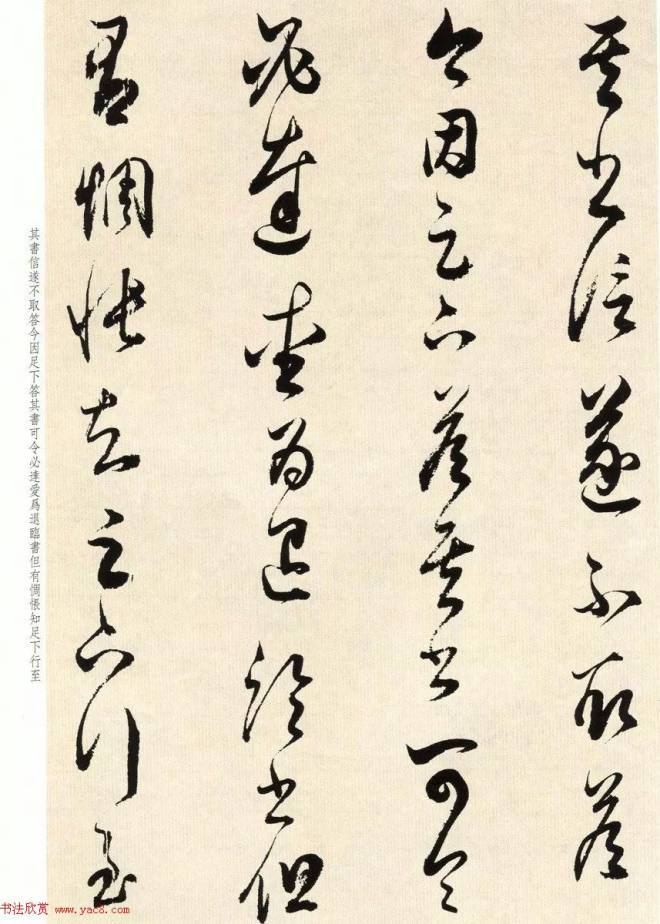 其書信遂不取答
今因足下答其書可令
必達愛為退臨書但
有惆悵知足下行至
其書信遂不取答今因足下答其書可令必達愛爲退臨書但有惆悵知足下行至
书法欣赏 www.yac8.com